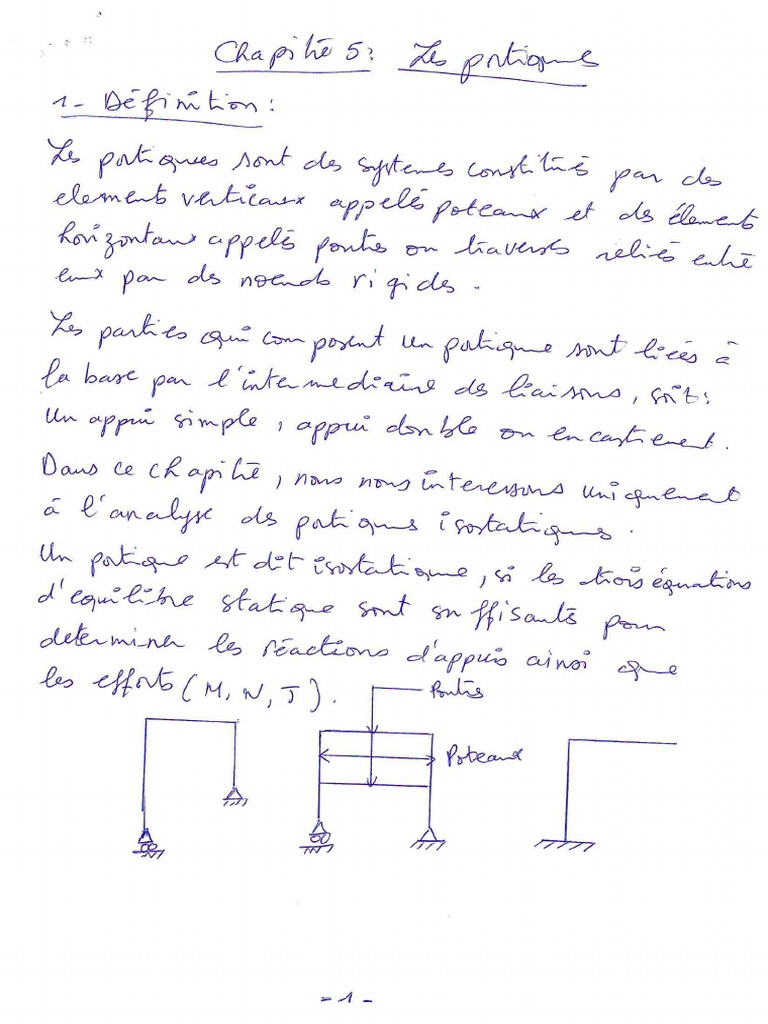 Chapitre 5: Les portiques
1- Définition:
Les portiques sont des systemes constitués par des
elements verticaux appelés poteaux et des élements
horizontaux appelés poutres ou traverses reliés entre
eux par des noeuds rigides.
Les parties qui composent un portique sont liées à
la base par l'intermediaire des liaisons, soit:
Un appui simple, appui double ou encastrement.
Dans ce chapitre, nous nous interessons uniquement
à l'analyse des portiques isostatiques.
Un portique est dit isostatique, si les trois équations
d'equilibre statique sont suffisants pour
determiner les réactions d'appuis ainsi que
les efforts (M, N, T).
Poutres
Poteaux
- 1 -